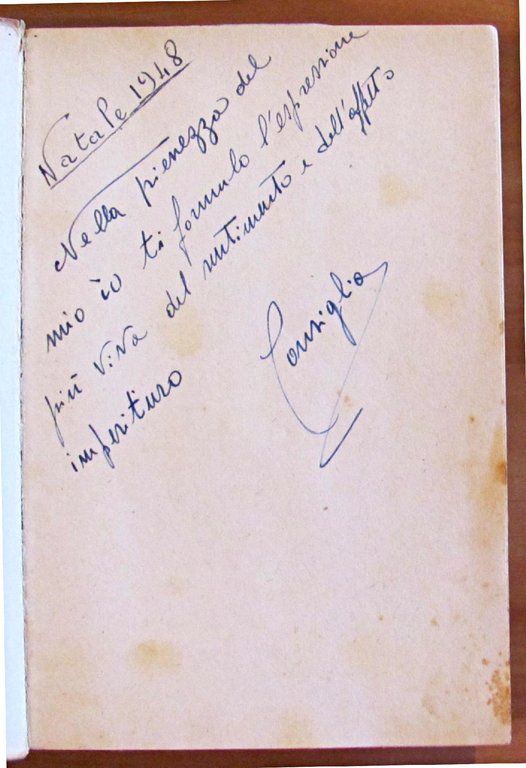 Natale 1948
Nella pienezza del
mio io ti formulo l'espressione
più viva del sentimento e dell'affetto
imperituro
Consiglia